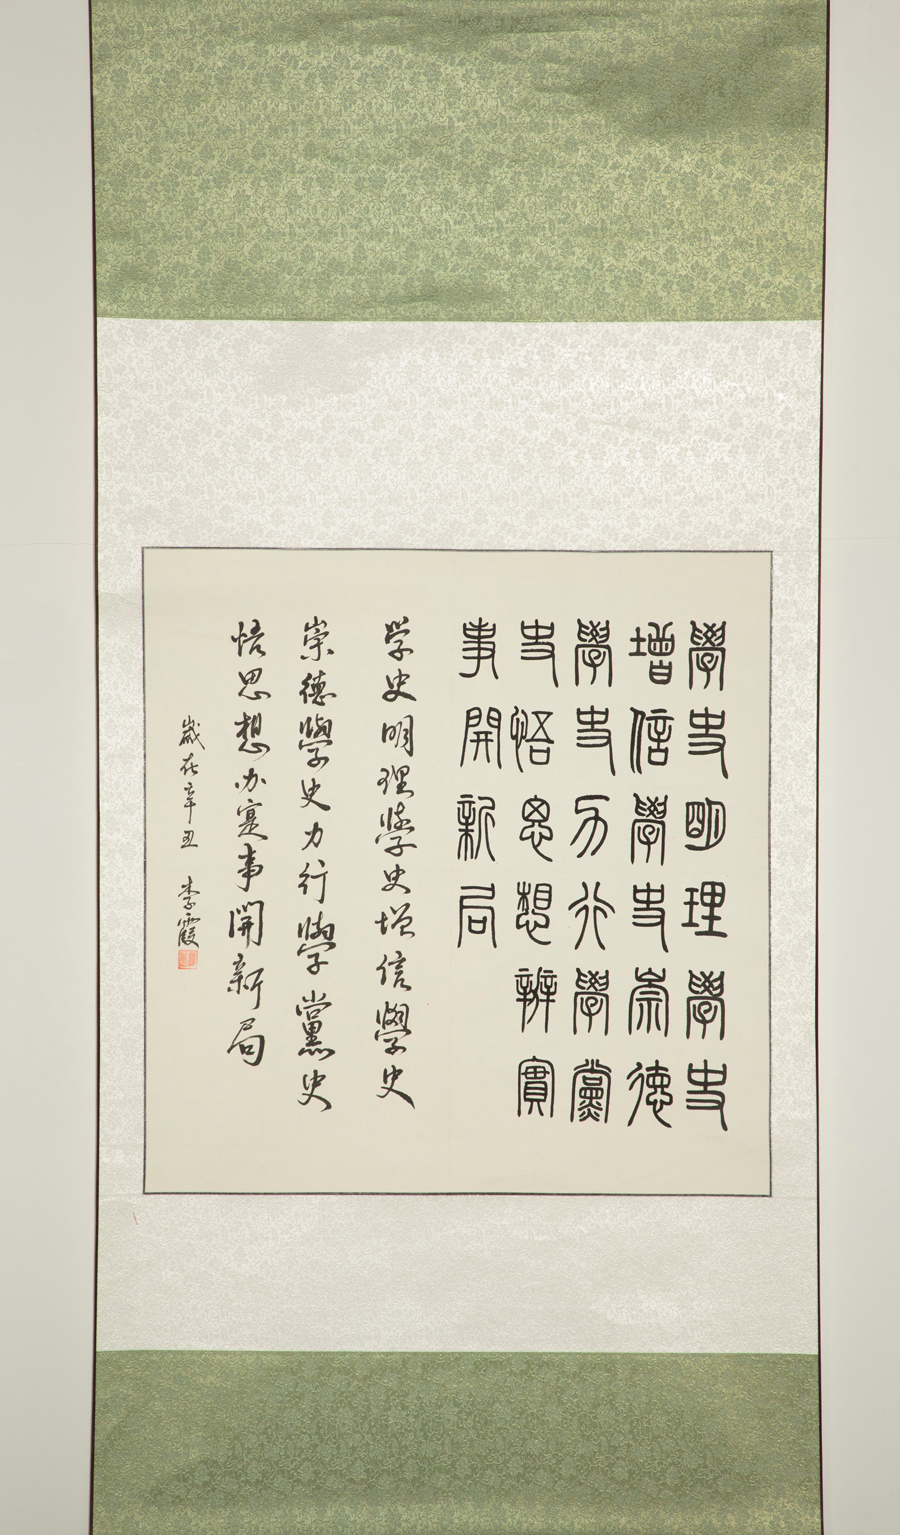 學史明理學史
增信學史崇德
學史力行學黨
史悟思想辦實
事開新局
学史明理學史增信學史
崇德學史力行學黨史
悟思想办实事開新局
歲在辛丑 李霞